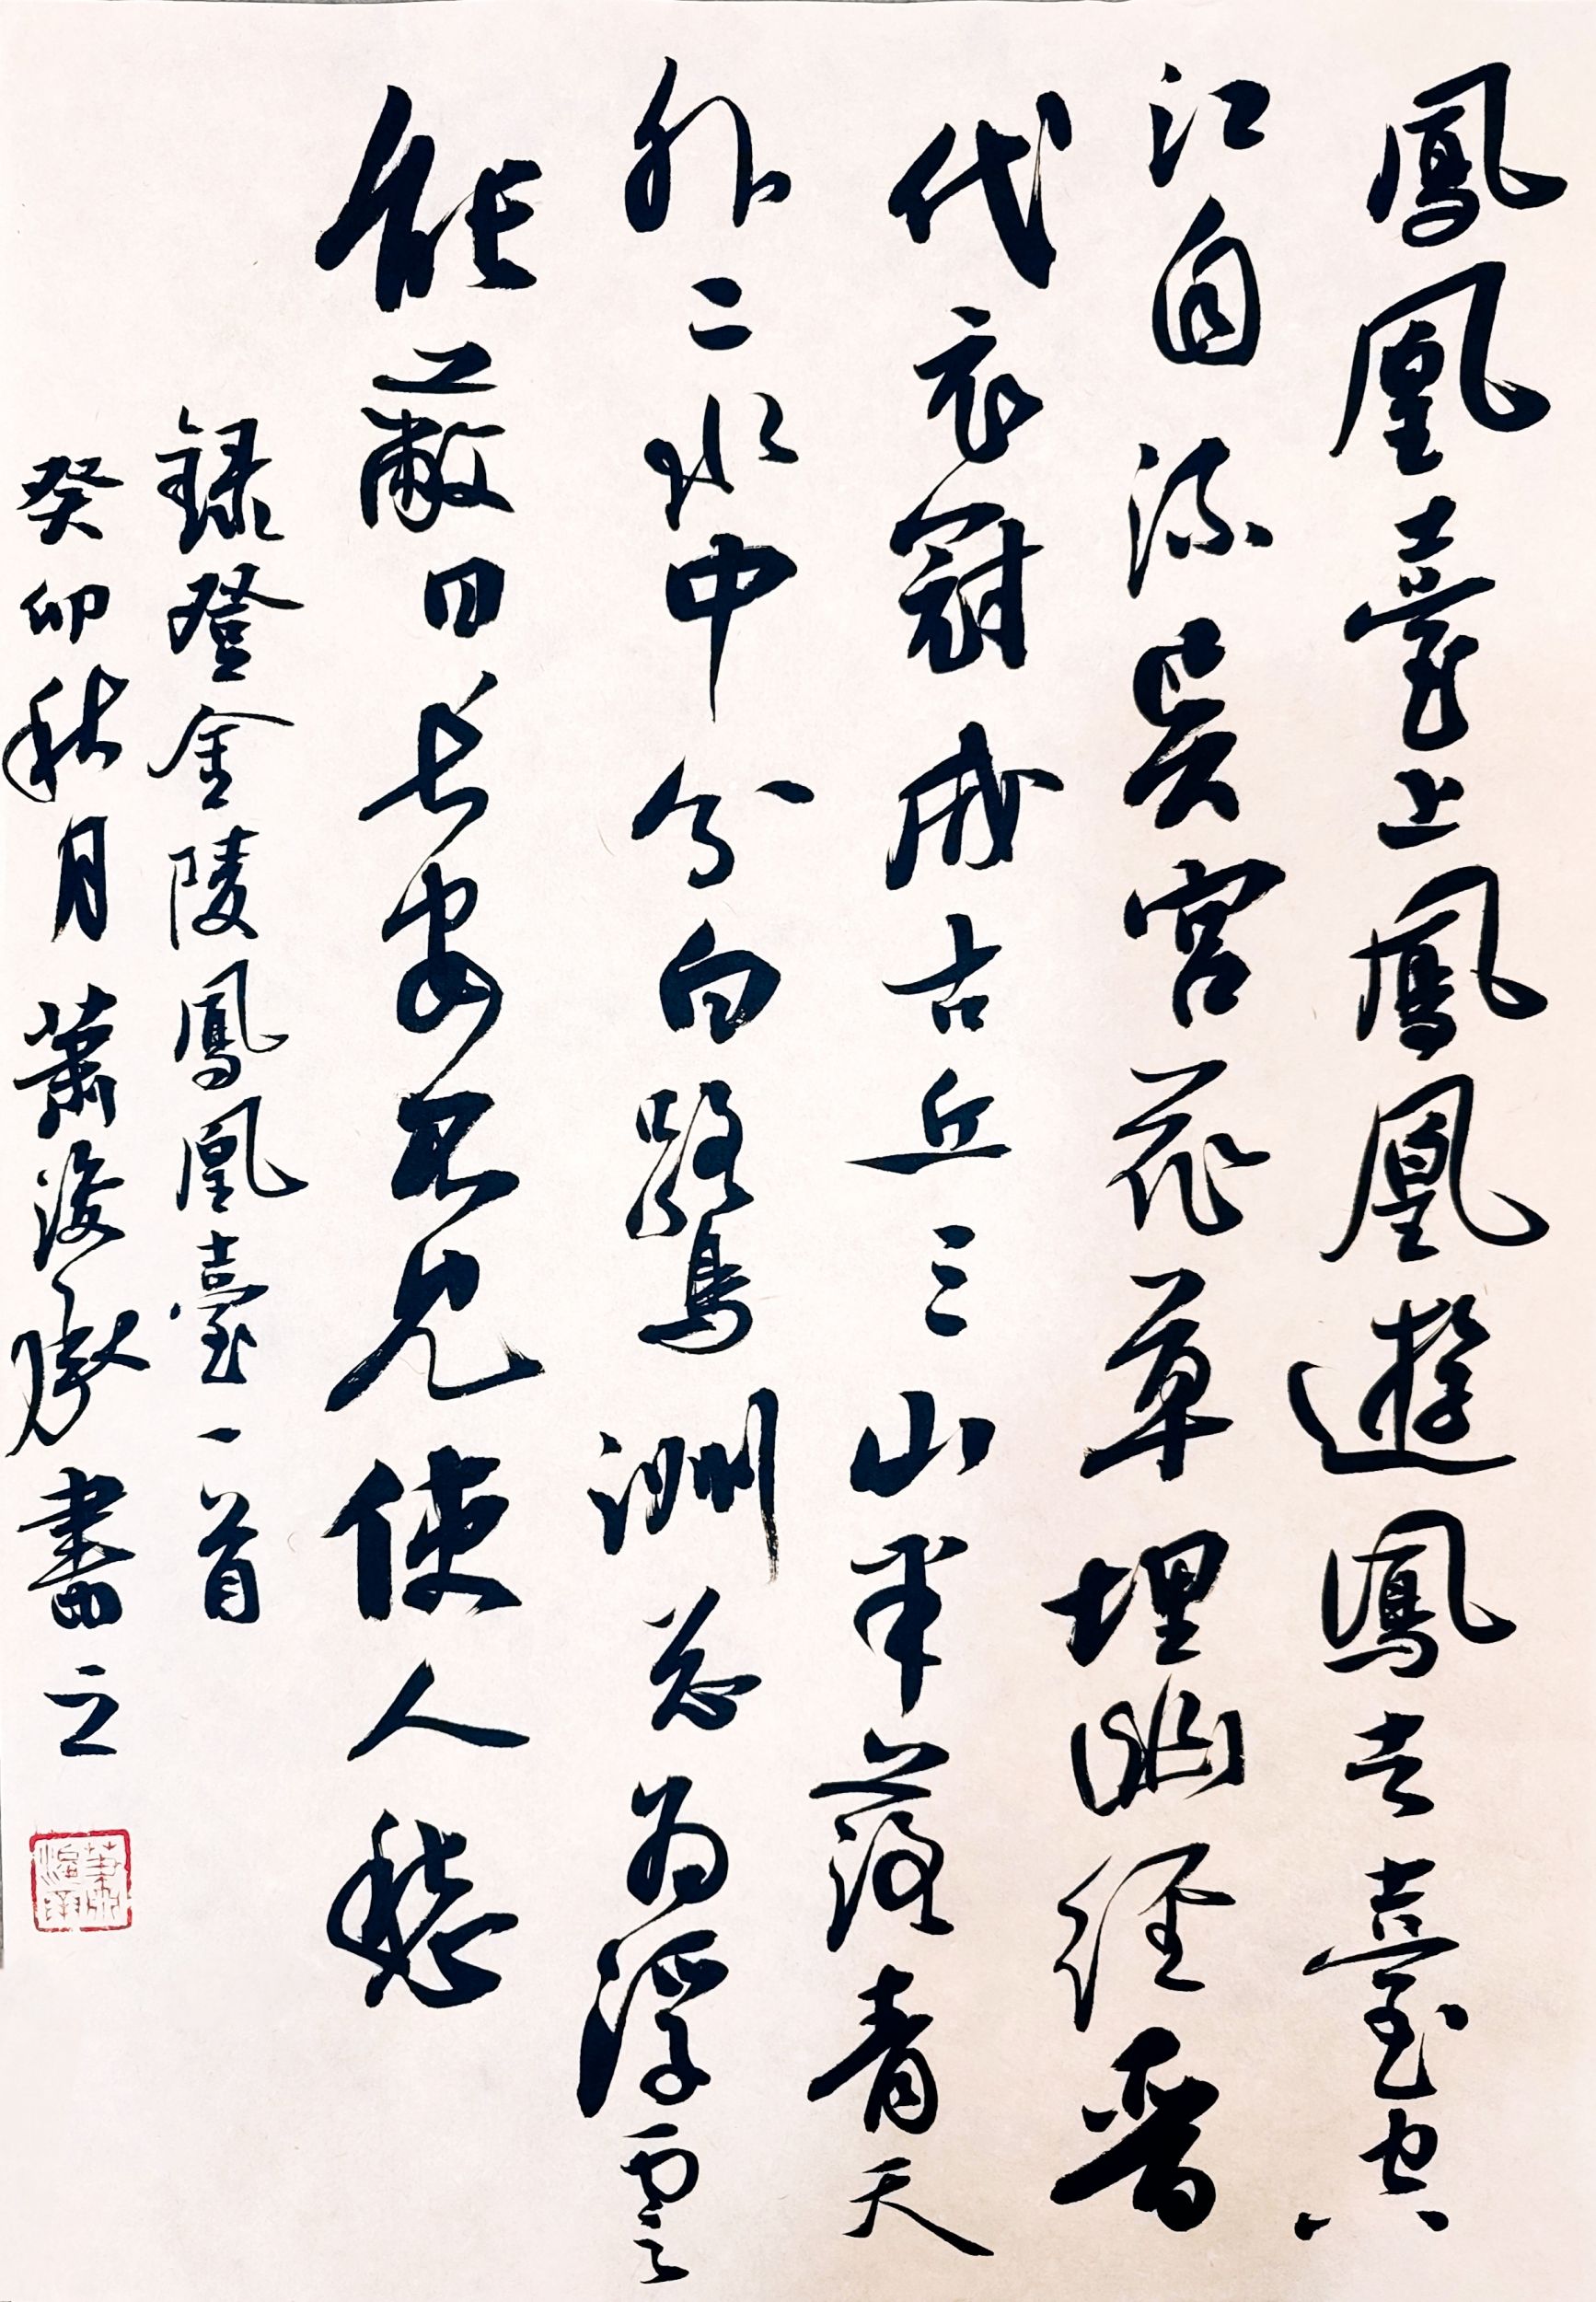 鳳凰臺上鳳凰遊鳳去臺空
江自流吴宮花草埋幽径晋
代衣冠成古丘三山半落青天
外二水中分白鷺洲总为浮雲
能蔽日长安不見使人愁
録登金陵鳳凰臺一首
癸卯秋月蕭 書之